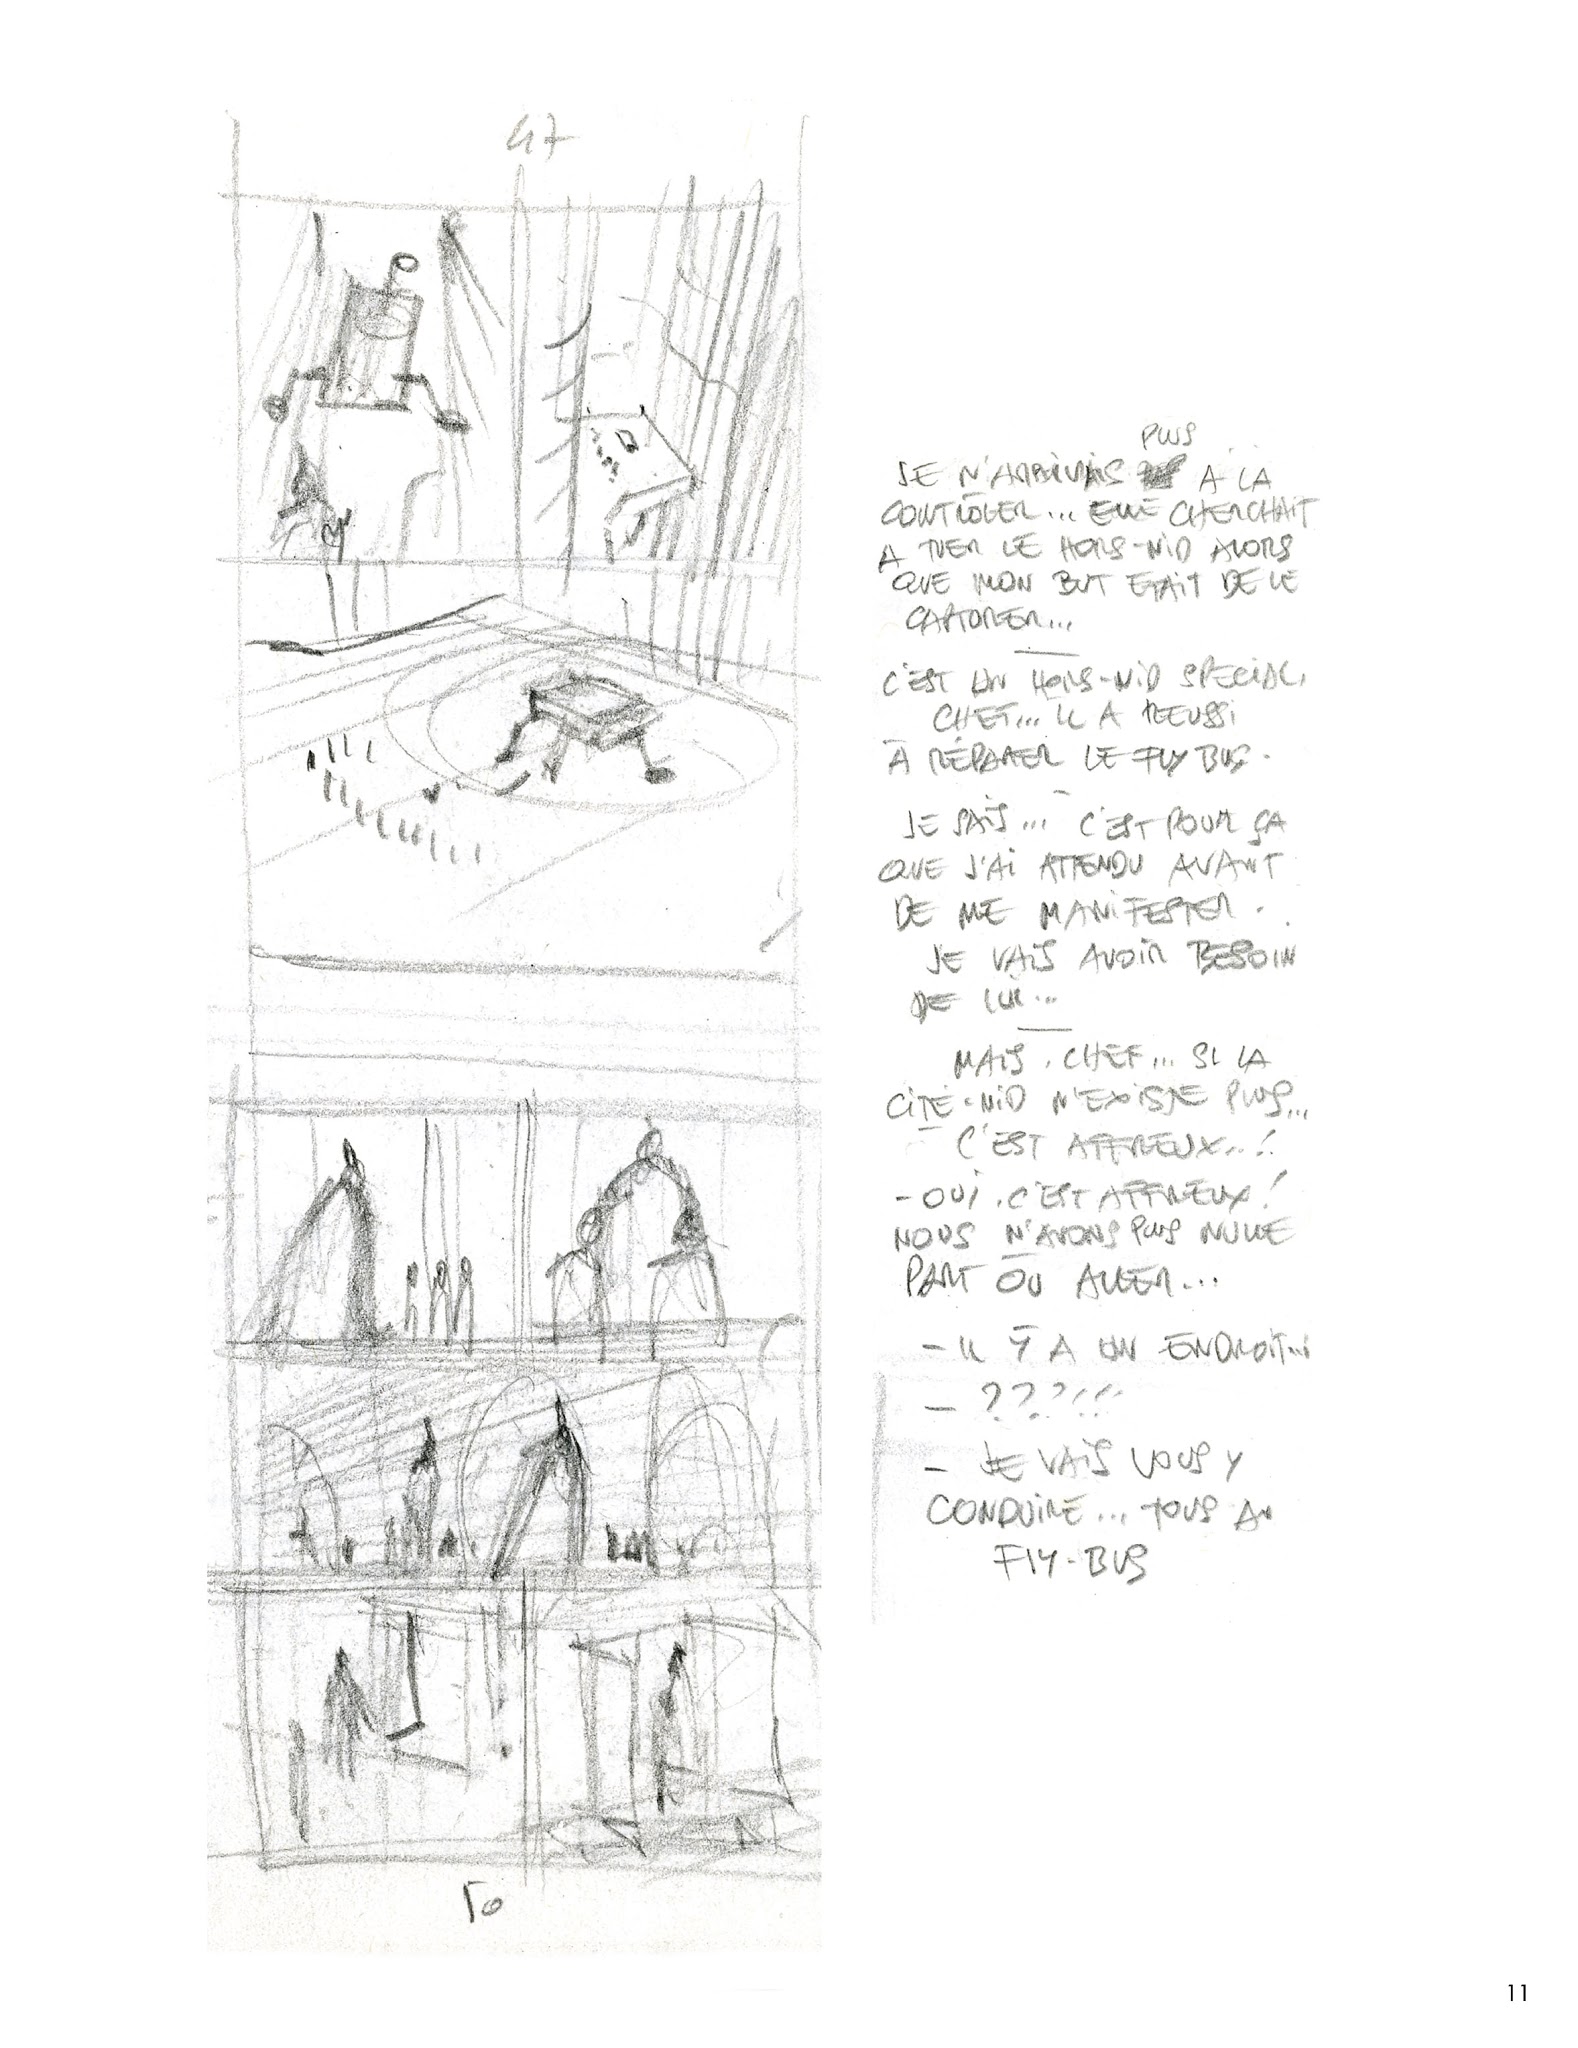 47
PLUS
JE N'ARRIVAIS A LA
CONTRÔLER... ELLE CHERCHAIT
A TUER LE HORS-NID ALORS
QUE MON BUT ETAIT DE LE
CAPTURER...
C'EST UN HORS-NID SPECIAL,
CHEF... IL A REUSSI
A RÉPARER LE FLY BUS.
JE SAIS... C'EST POUR ÇA
QUE J'AI ATTENDU AVANT
DE ME MANIFESTER.
JE VAIS AVOIR BESOIN
DE LUI...
MAIS, CHEF... SI LA
CITÉ-NID N'EXISTE PLUS...
C'EST AFFREUX..!
- OUI, C'EST AFFREUX!
NOUS N'AVONS PLUS NULLE
PART OU ALLER...
- IL Y A UN ENDROIT...
- ???!!!
- JE VAIS VOUS Y
CONDUIRE... TOUS AU
FLY-BUS
11